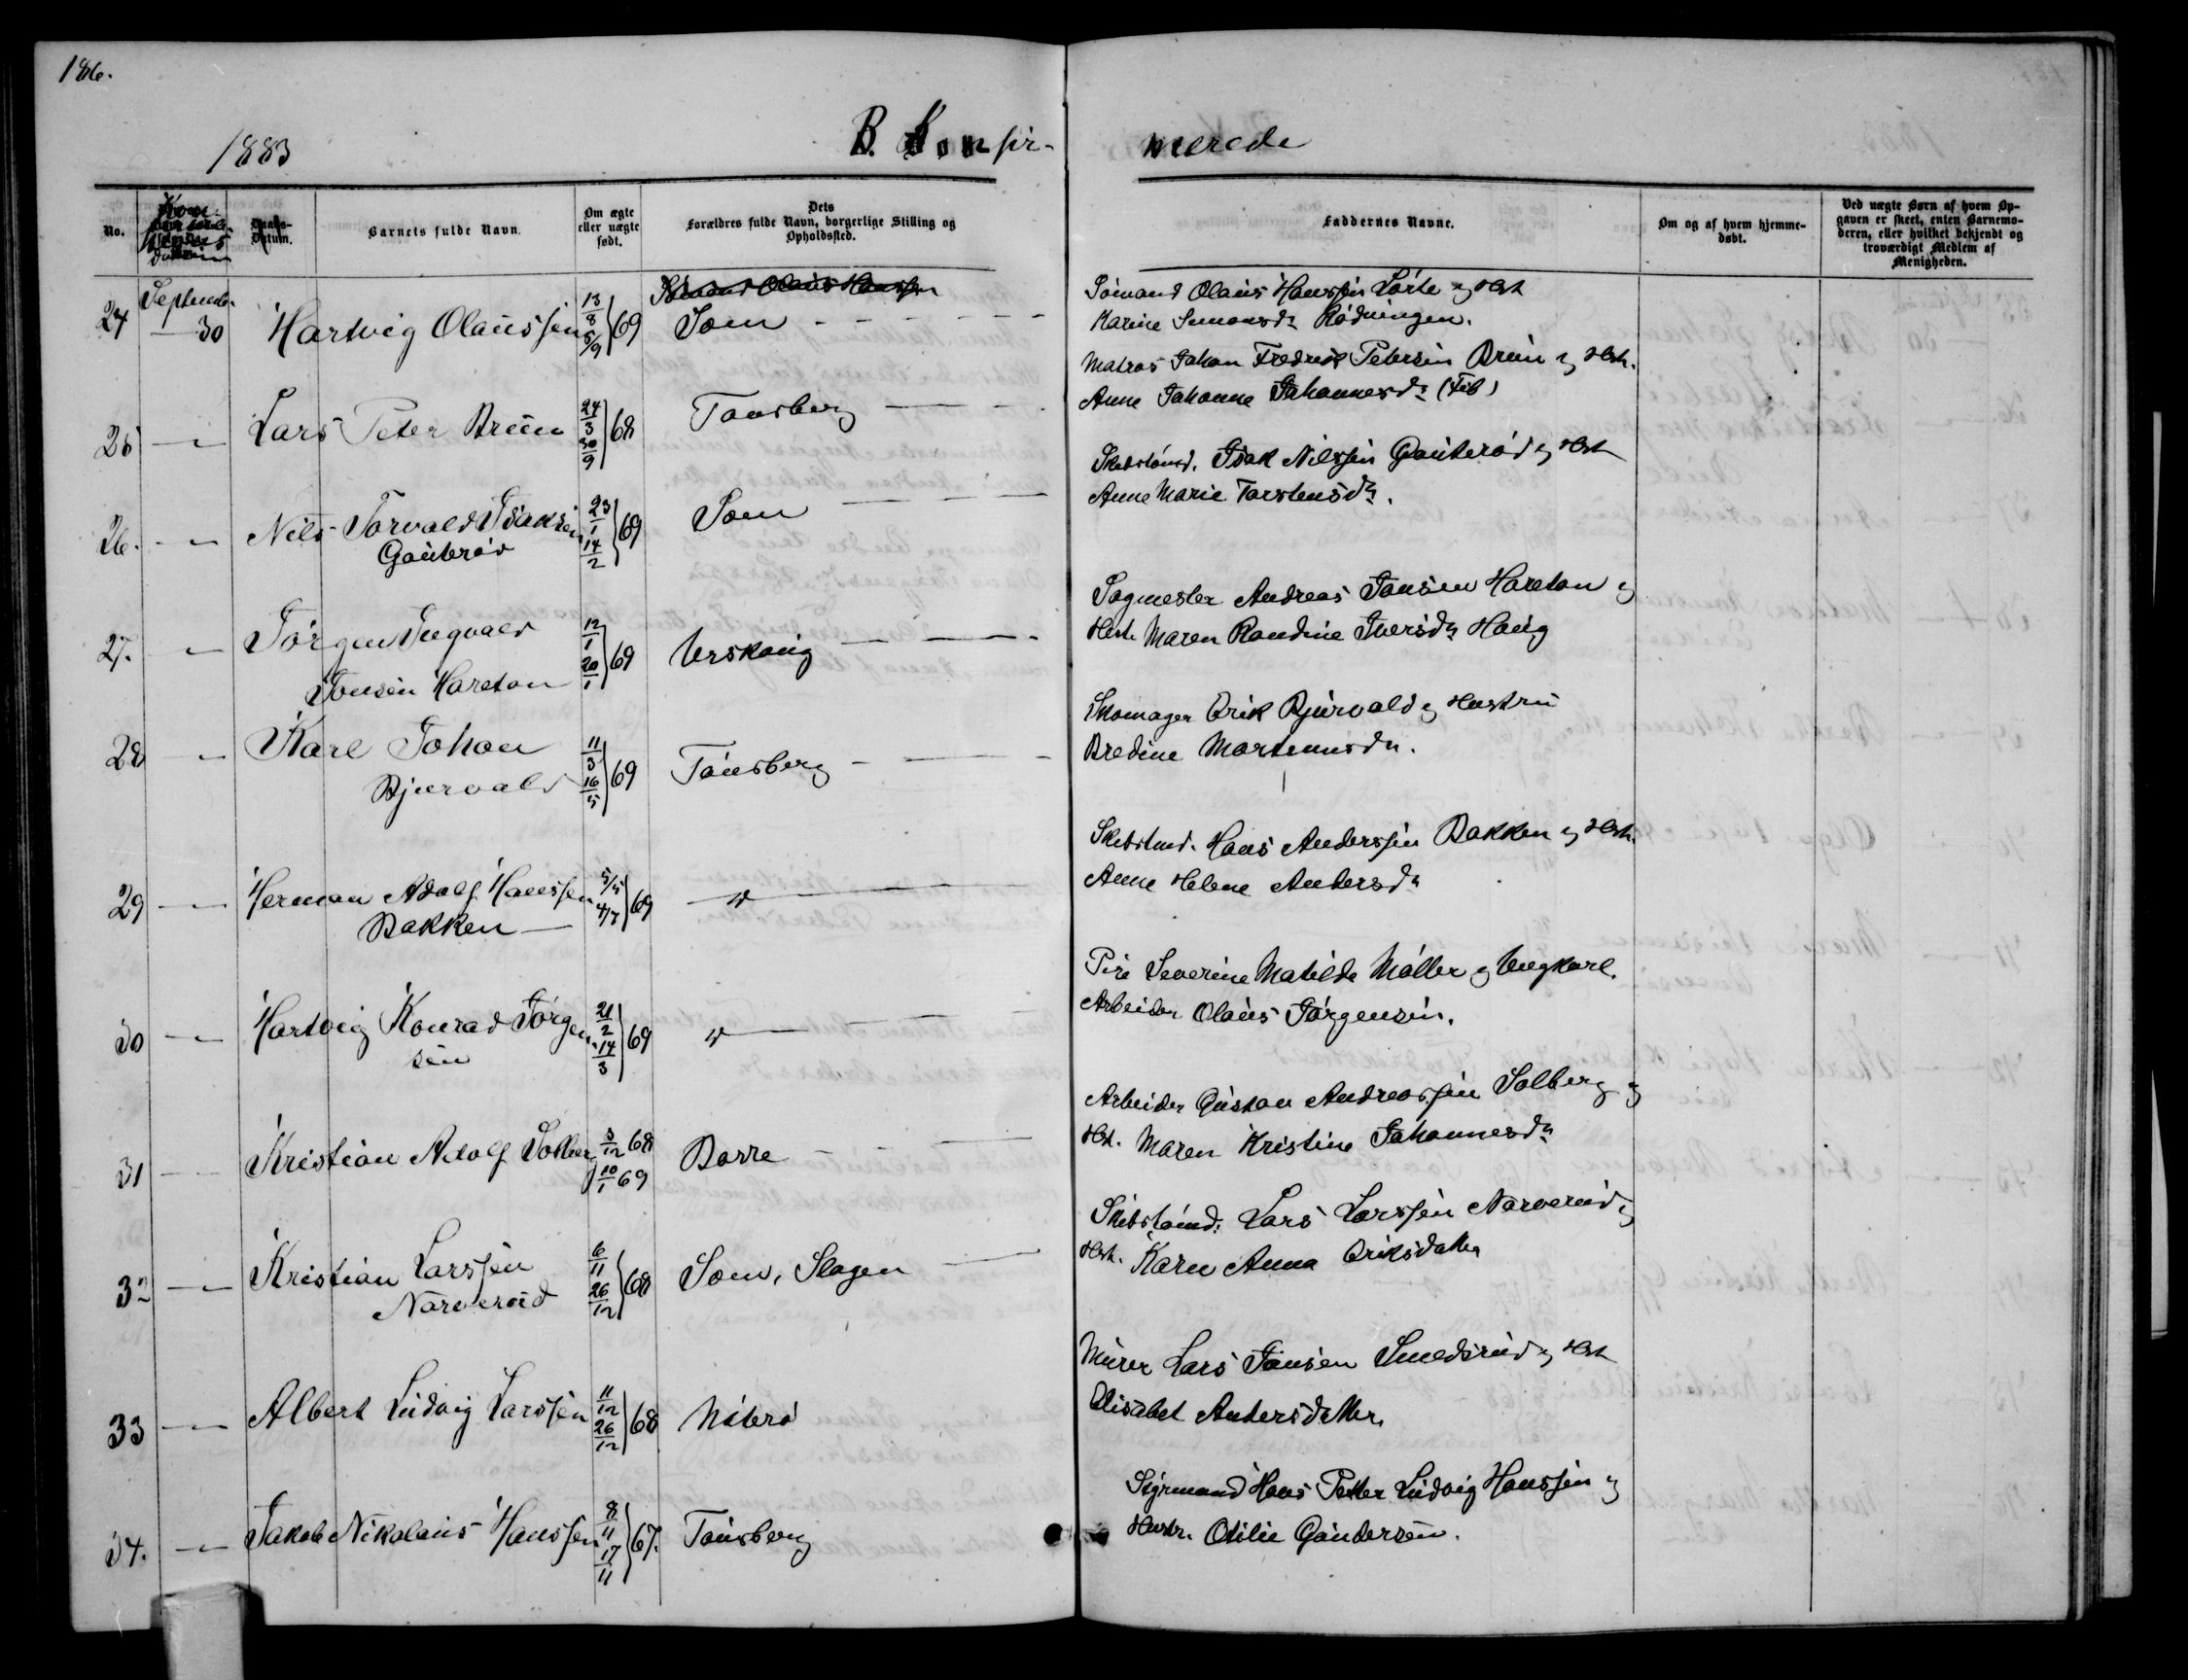 186.
1883
B. Konfir-
merede
No.
Barnets fulde Navn.
Om ægte
eller uægte
født.
Dets
Forældres fulde Navn, borgerlige Stilling og
Opholdssted.
Faddernes Navne.
Om og af hvem hjemme-
døbt.
Ved uægte Børn af hvem Op-
gaven er skeet, enten Barnemo-
deren, eller hvilket bekjendt og
troværdigt Medlem af
Menigheden.
24 Septemb. 30 Hartvig Olaussen 13/8 5/9 69 Sem
Sømand Olaus Hanssen og Hst
Karine Simonsdr Rødningen.
25 Lars Peter Bruun 24/3 30/9 68 Tønsberg
Matros Johan Fredrik Petersen Bruun og Hst.
Anne Johanne Johannesdr
26. Nils Torvald Isaksen 23/1 14/2 69 Sem
Gauterød
Skibstømd. Isak Nilssen Gauterød og Hst
Anne Marie Torstensdr.
27. Jørgen Ingvald 12/1 20/1 69 Urskoug
Jonsen Hareton
Sagmester Andreas Jonsen Hareton og
Hust. Maren Randine Iversdr Haug
28 Karl Johan 11/3 16/5 69 Tønsberg
Bjurvald
Skomager Erik Bjurvald og Hustru
Bredine Mortensdr.
29 Herman Adolf Hanssen 5/5 4/7 69 "
Bakken
Skibstmd. Hans Anderssen Bakken og Hst.
Anne Helene Andersdr
30 Hartvig Konrad Jørgen- 21/2 14/3 69 "
sen
Pige Severine Matilde Møller og Ungkarl.
Arbeider Olaus Jørgensen.
31 Kristian Adolf 3/12 68 10/1 69 Borre
Arbeider Gustav Andreassen Solberg og
Hst. Maren Kristine Johannesdr
32 Kristian Larssen 6/11 26/12 68 Sem, Slagen
Narverud
Skibstømd. Lars Larssen Narverud og
Hst. Karen Anna Eriksdatter
33 Albert Ludvig Larssen 11/12 26/12 68 Nøterø
Murer Lars Jansen Smedsrud og Hst
Elisabet Andersdatter.
34. Jakob Nikolaus Hanssen 8/11 17/11 67. Tønsberg
Styrmand Hans Petter Ludvig Hanssen og
Hustr. Otilie Gundersen.